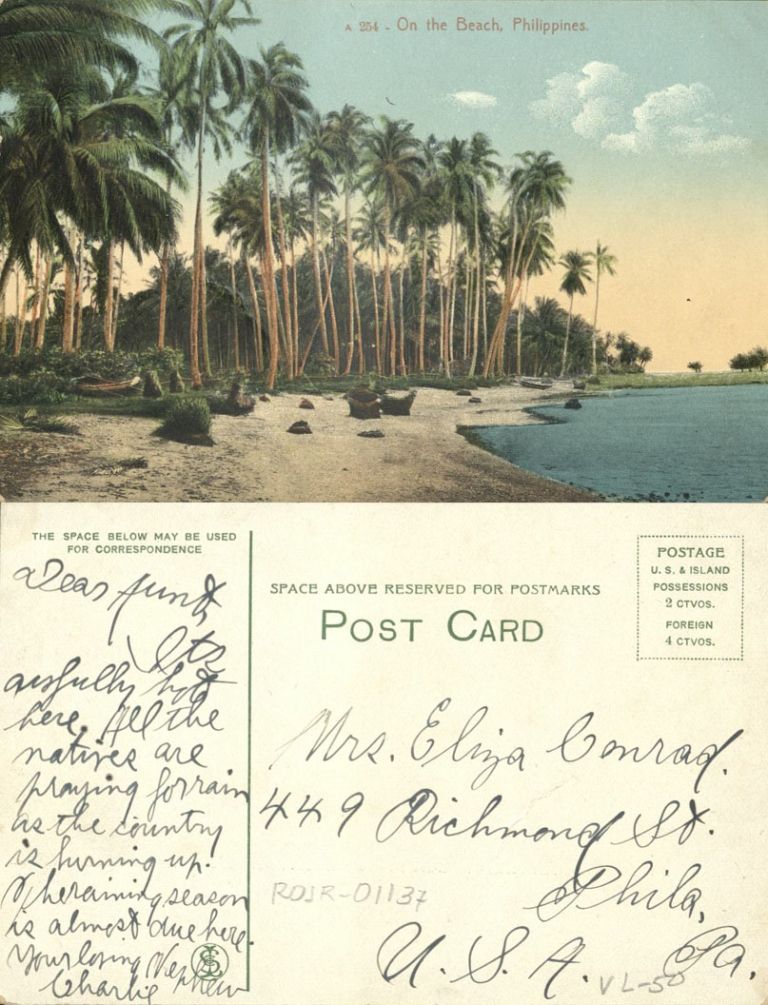 A 254 - On the Beach, Philippines.
THE SPACE BELOW MAY BE USED
FOR CORRESPONDENCE
Dear Aunt,
Its
awfully hot
here. All the
natives are
praying for rain
as the country
is burning up.
The raining season
is almost due here.
Your loving Nephew
Charlie
SPACE ABOVE RESERVED FOR POSTMARKS
POST CARD
POSTAGE
U. S. & ISLAND
POSSESSIONS
2 CTVOS.
FOREIGN
4 CTVOS.
Mrs. Eliza Conrad.
449 Richmond St.
Phila,
U. S. A. Pa.
ROJR-01137
VL-50